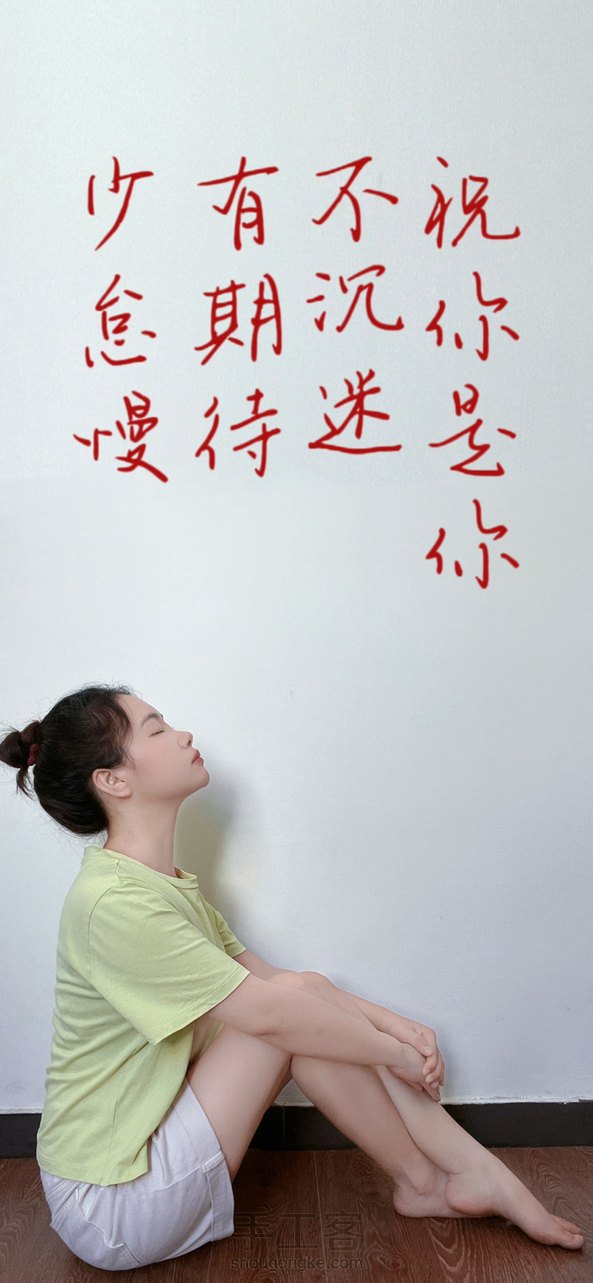 祝你是你
不沉迷
有期待
少怠慢
手工客
shougongke.com